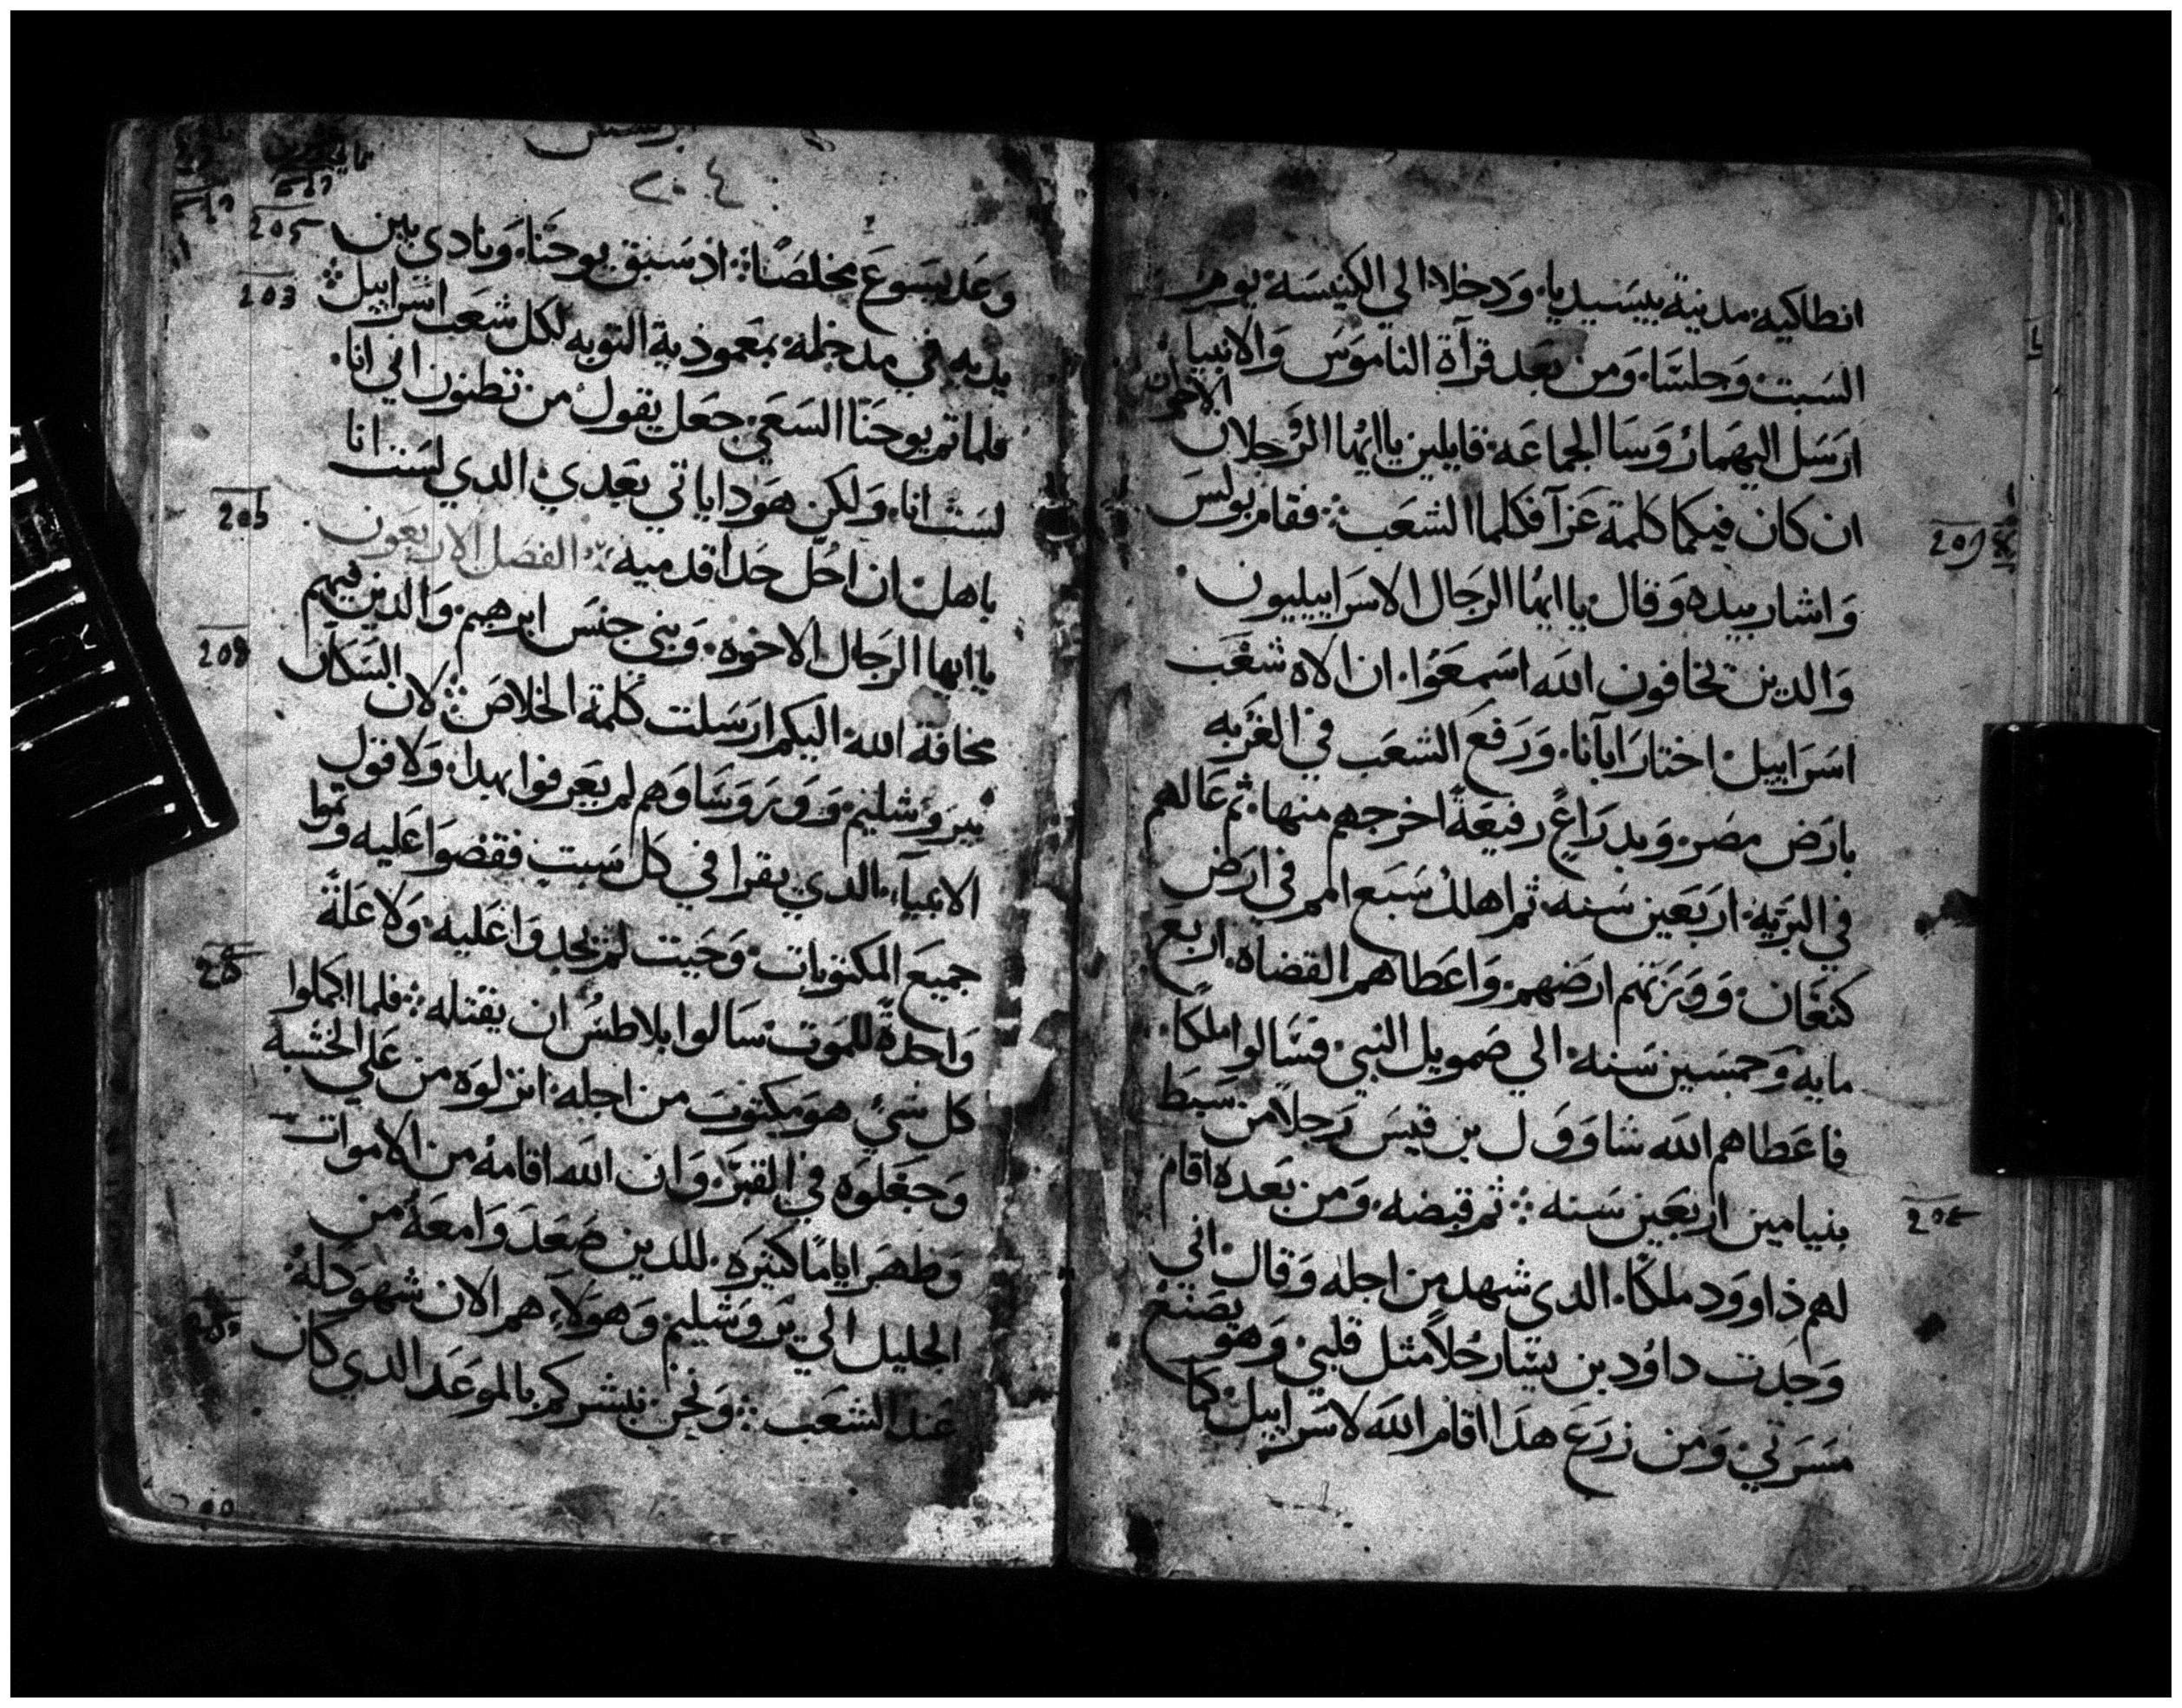 انطاكيه مدينة بيسيديا. ودخلا الي الكنيسة يوم
السبت وجلسا. ومن بعد قرآة الناموس والانبيا
ارسل اليهما روسا الجماعه قايلين يا ايها الرجلان
الاخوان
ان كان فيكما كلمة عزآ فكلما الشعب: فقام بولس
واشار بيده وقال يا ايها الرجال الاسراييليون
والدين تخافون الله اسمعوا. ان الاه شعب
اسراييل اختار ابآنا. ورفع الشعب في الغربه
بارض مصر. وبدراع رفيعة اخرجهم منها. ثم عالهم
في البريه اربعين سنه. ثم اهلك سبع امم في ارض
كنعان. وورثهم ارضهم. واعطاهم القضاه. اربع
مايه وخمسين سنه الي صمويل النبي. فسالوا ملكا.
فاعطاهم الله شاوول بن قيس رجلا من سبط
بنيامين اربعين سنه: ثم قبضه. ومن بعده اقام
لهم داوود ملكا. الدي شهد من اجله وقال اني
وجدت داوود بن يسا رجلا مثل قلبي وهو يصنع
مسرتي ومن زرع هدا اقام الله لاسراييل كما
٢٠٤
وعد يسوع مخلصنا: اذ سبق يوحنا. ونادى بين
يديه في مدخله بمعموذية التوبه لكل شعب اسراييل
فلما تم يوحنا السعي جعل يقول من تظنون اني انا.
لست انا. ولكن هودا ياتي بعدي الدي لست انا
باهل ان احل حدا قدميه: الفصل الاربعون
يا ايها الرجال الاخوه. وبني جنس ابرهيم والدين فيهم
مخافة الله. اليكم ارسلت كلمة الخلاص: لان السكان
بيروشليم. وروساوهم لم يعرفوا بهدا. ولا قول
الانبيآ. الدي يقرا في كل سبت فقضوا عليه وتموا
جميع المكتوبات. وحيت لم يجدوا عليه ولا علة
واحدة للموت سالوا بلاطس ان يقتله: فلما اكملوا
كل شي هو مكتوب من اجله انزلوه من علي الخشبة
وجعلوه في القبر. وان الله اقامه من الاموات
وظهر اياما كتيره. للدين صعدوا معه من
الجليل الي يروشليم وهولاء هم الان شهود له
عند الشعب: ونحن نبشركم بالموعد الدي كان